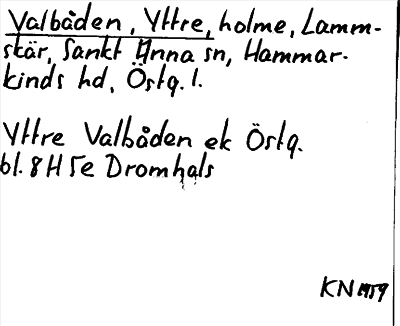 Valbåden, Yttre, holme, Lamm-
skär, Sankt Anna sn, Hammar-
kinds hd, Östg. l.
Yttre Valbåden ek Östg.
bl. 8 H 5e Dromhals
KN 1959